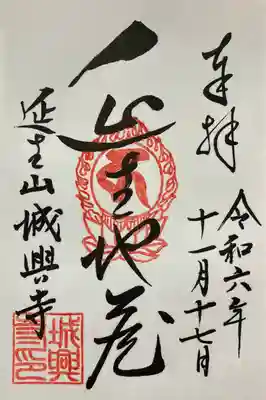 奉拝
令和六年
十一月十七日
延生地蔵
延生山城興寺
城興寺印